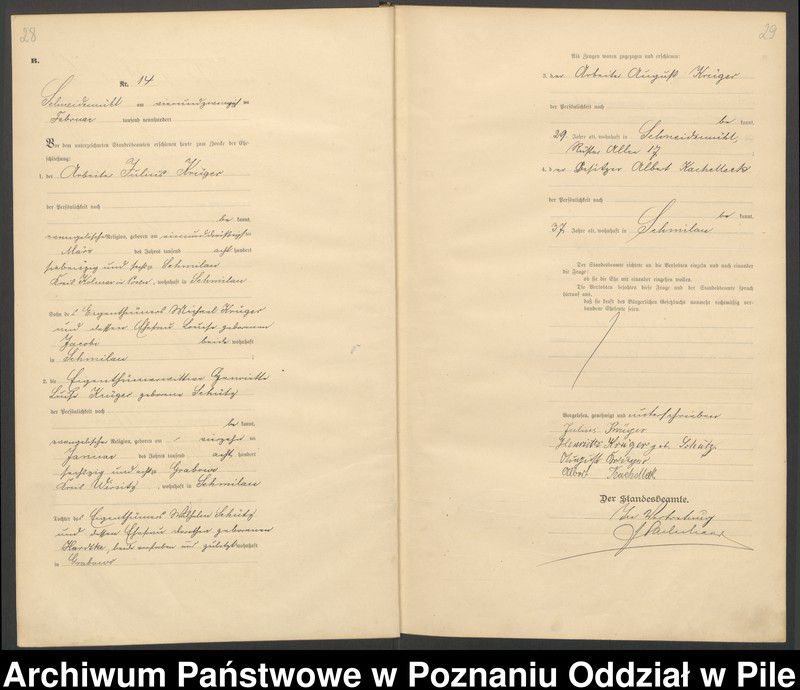 28
B.
Nr. 14
Schneidemühl am vierundzwanzigsten
Februar tausend neunhundert
Vor dem unterzeichneten Standesbeamten erschienen heute zum Zwecke der Ehe-
schließung:
1. der Arbeiter Julius Krüger
der Persönlichkeit nach
be kannt,
evangelischer Religion, geboren am einunddreißigsten
März des Jahres tausend acht hundert
siebenzig und sechs Schmilau
Kreis Kolmar in Posen, wohnhaft in Schmilau
Sohn des Eigenthümers Michael Krüger
und dessen Ehefrau Louise geborenen
Jacobs beide wohnhaft
in Schmilau
2. die Eigenthümerwittwe Henriette
Luise Krüger geborene Schütz
der Persönlichkeit nach
be kannt,
evangelischer Religion, geboren am vierzehnten
Januar des Jahres tausend acht hundert
sechzig und sechs Grabowo
Kreis Wirsitz, wohnhaft in Schmilau
Tochter des Eigenthümers Wilhelm Schütz
und dessen Ehefrau Dorothea geborenen
Hardtke, beide verstorben und zuletzt wohnhaft
in Grabowo
29
Als Zeugen waren zugezogen und erschienen:
3. der Arbeiter August Krüger
der Persönlichkeit nach
be kannt,
29 Jahre alt, wohnhaft in Schneidemühl,
Allee 17
4. der Besitzer Albert Kachellack
der Persönlichkeit nach
be kannt,
37 Jahre alt, wohnhaft in Schmilau
Der Standesbeamte richtete an die Verlobten einzeln und nach einander
die Frage:
ob sie die Ehe mit einander eingehen wollen.
Die Verlobten bejahten diese Frage und der Standesbeamte sprach
hierauf aus,
daß sie kraft des Bürgerlichen Gesetzbuchs nunmehr rechtmäßig ver-
bundene Eheleute seien.
Vorgelesen, genehmigt und unterschrieben
Julius Krüger
Henriette Krüger geb. Schütz
August Krüger
Albert Kachellack
Der Standesbeamte.
In Vertretung
Archiwum Państwowe w Poznaniu Oddział w Pile